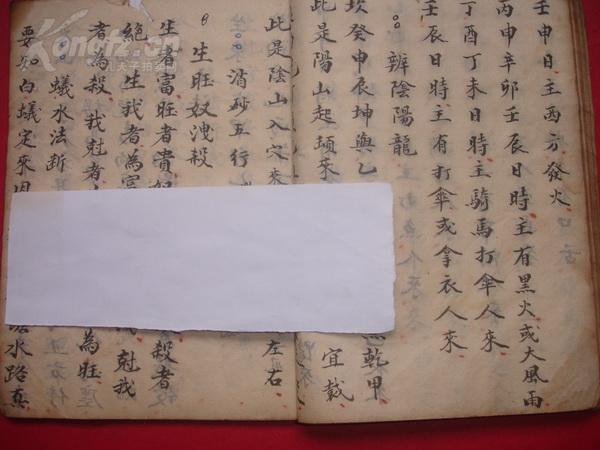 壬申日主西方發火口舌
丙申辛卯壬辰日時主有黑火或大風雨
丁酉丁未日時主騎馬打傘人來
壬辰日時主有打傘或拿衣人來
辨陰陽龍
坎癸申辰坤與乙 乾甲
此是陽山起頊來 宜裁
此是陰山入穴來 左右
消砂五行
生旺奴洩殺
生者富旺者貴奴 殺者
絕 生我者為官 尅我
者為殺我尅者 為旺
蟻水法斷
要知白蟻定來因 水路真